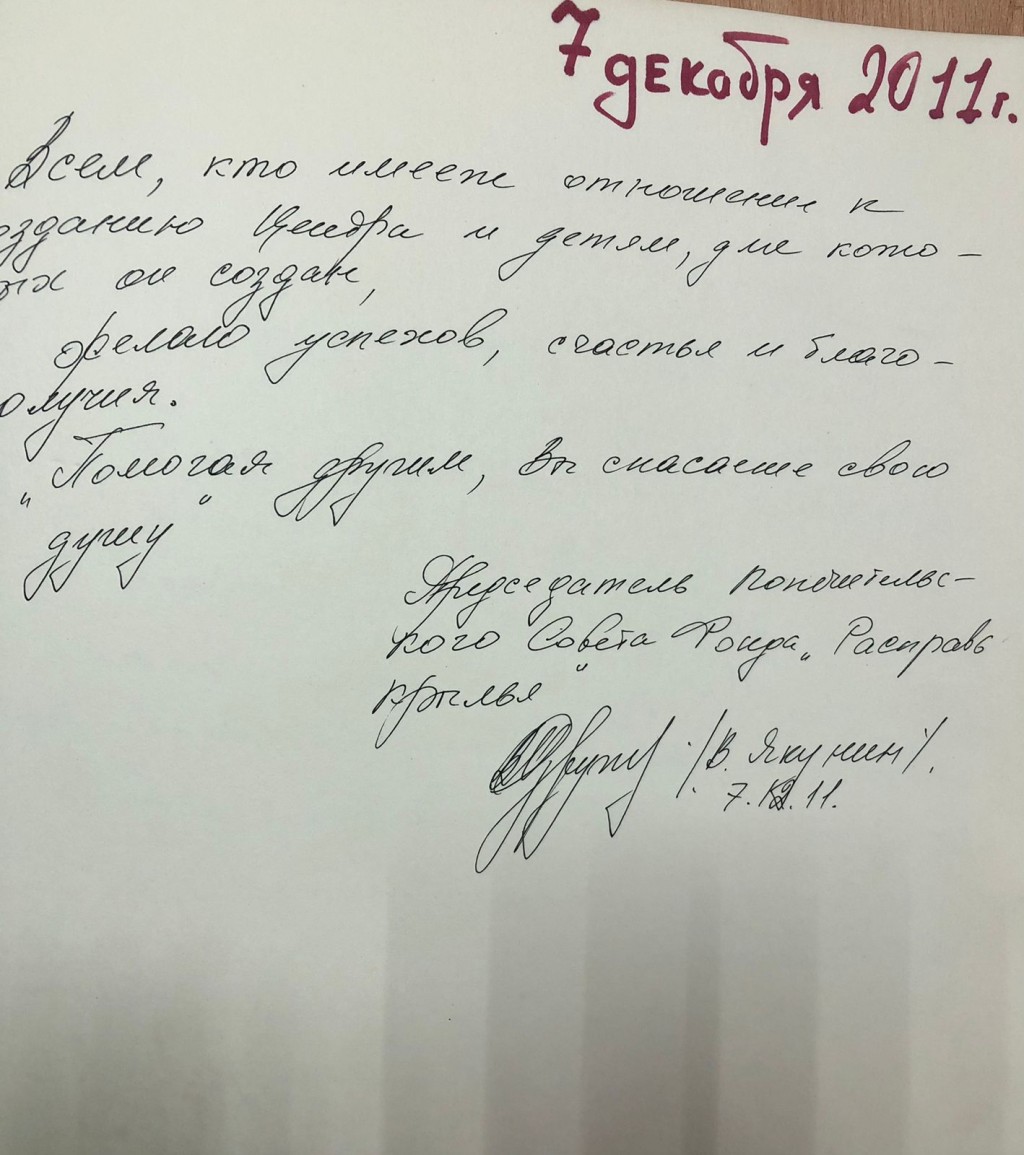 7 декабря 2011г.
Всем, кто имеет отношение к
озданию Центра и детям, для кото-
ых он создан,
желаю успехов, счастья и благо-
олучия.
„Помогая другим, Вы спасаете свою
душу"
Председатель Попечительс-
кого Совета Фонда „Расправь
крылья"
/В. Якунин/.
7.12.11.